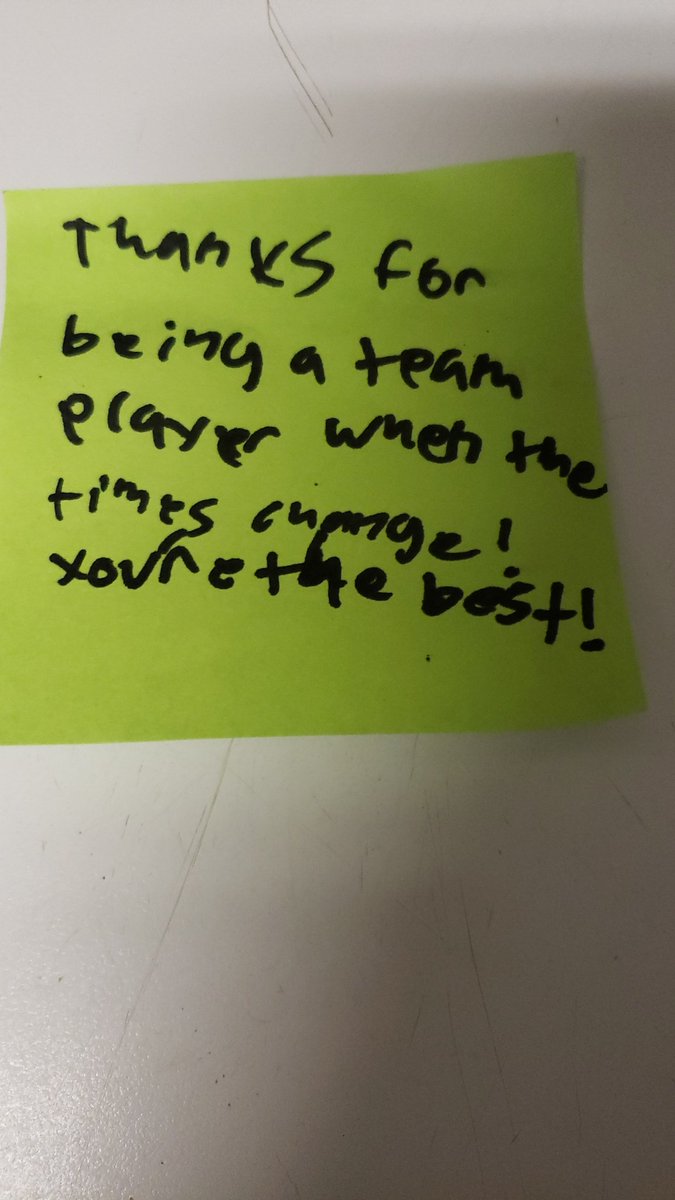 Thanks for
being a team
player when the
times change!
You're the best!